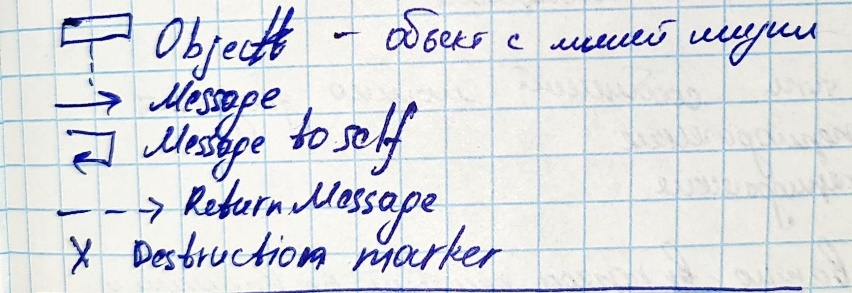 Object - объект с линией жизни
Message
Message to self
Return Message
X Destruction marker